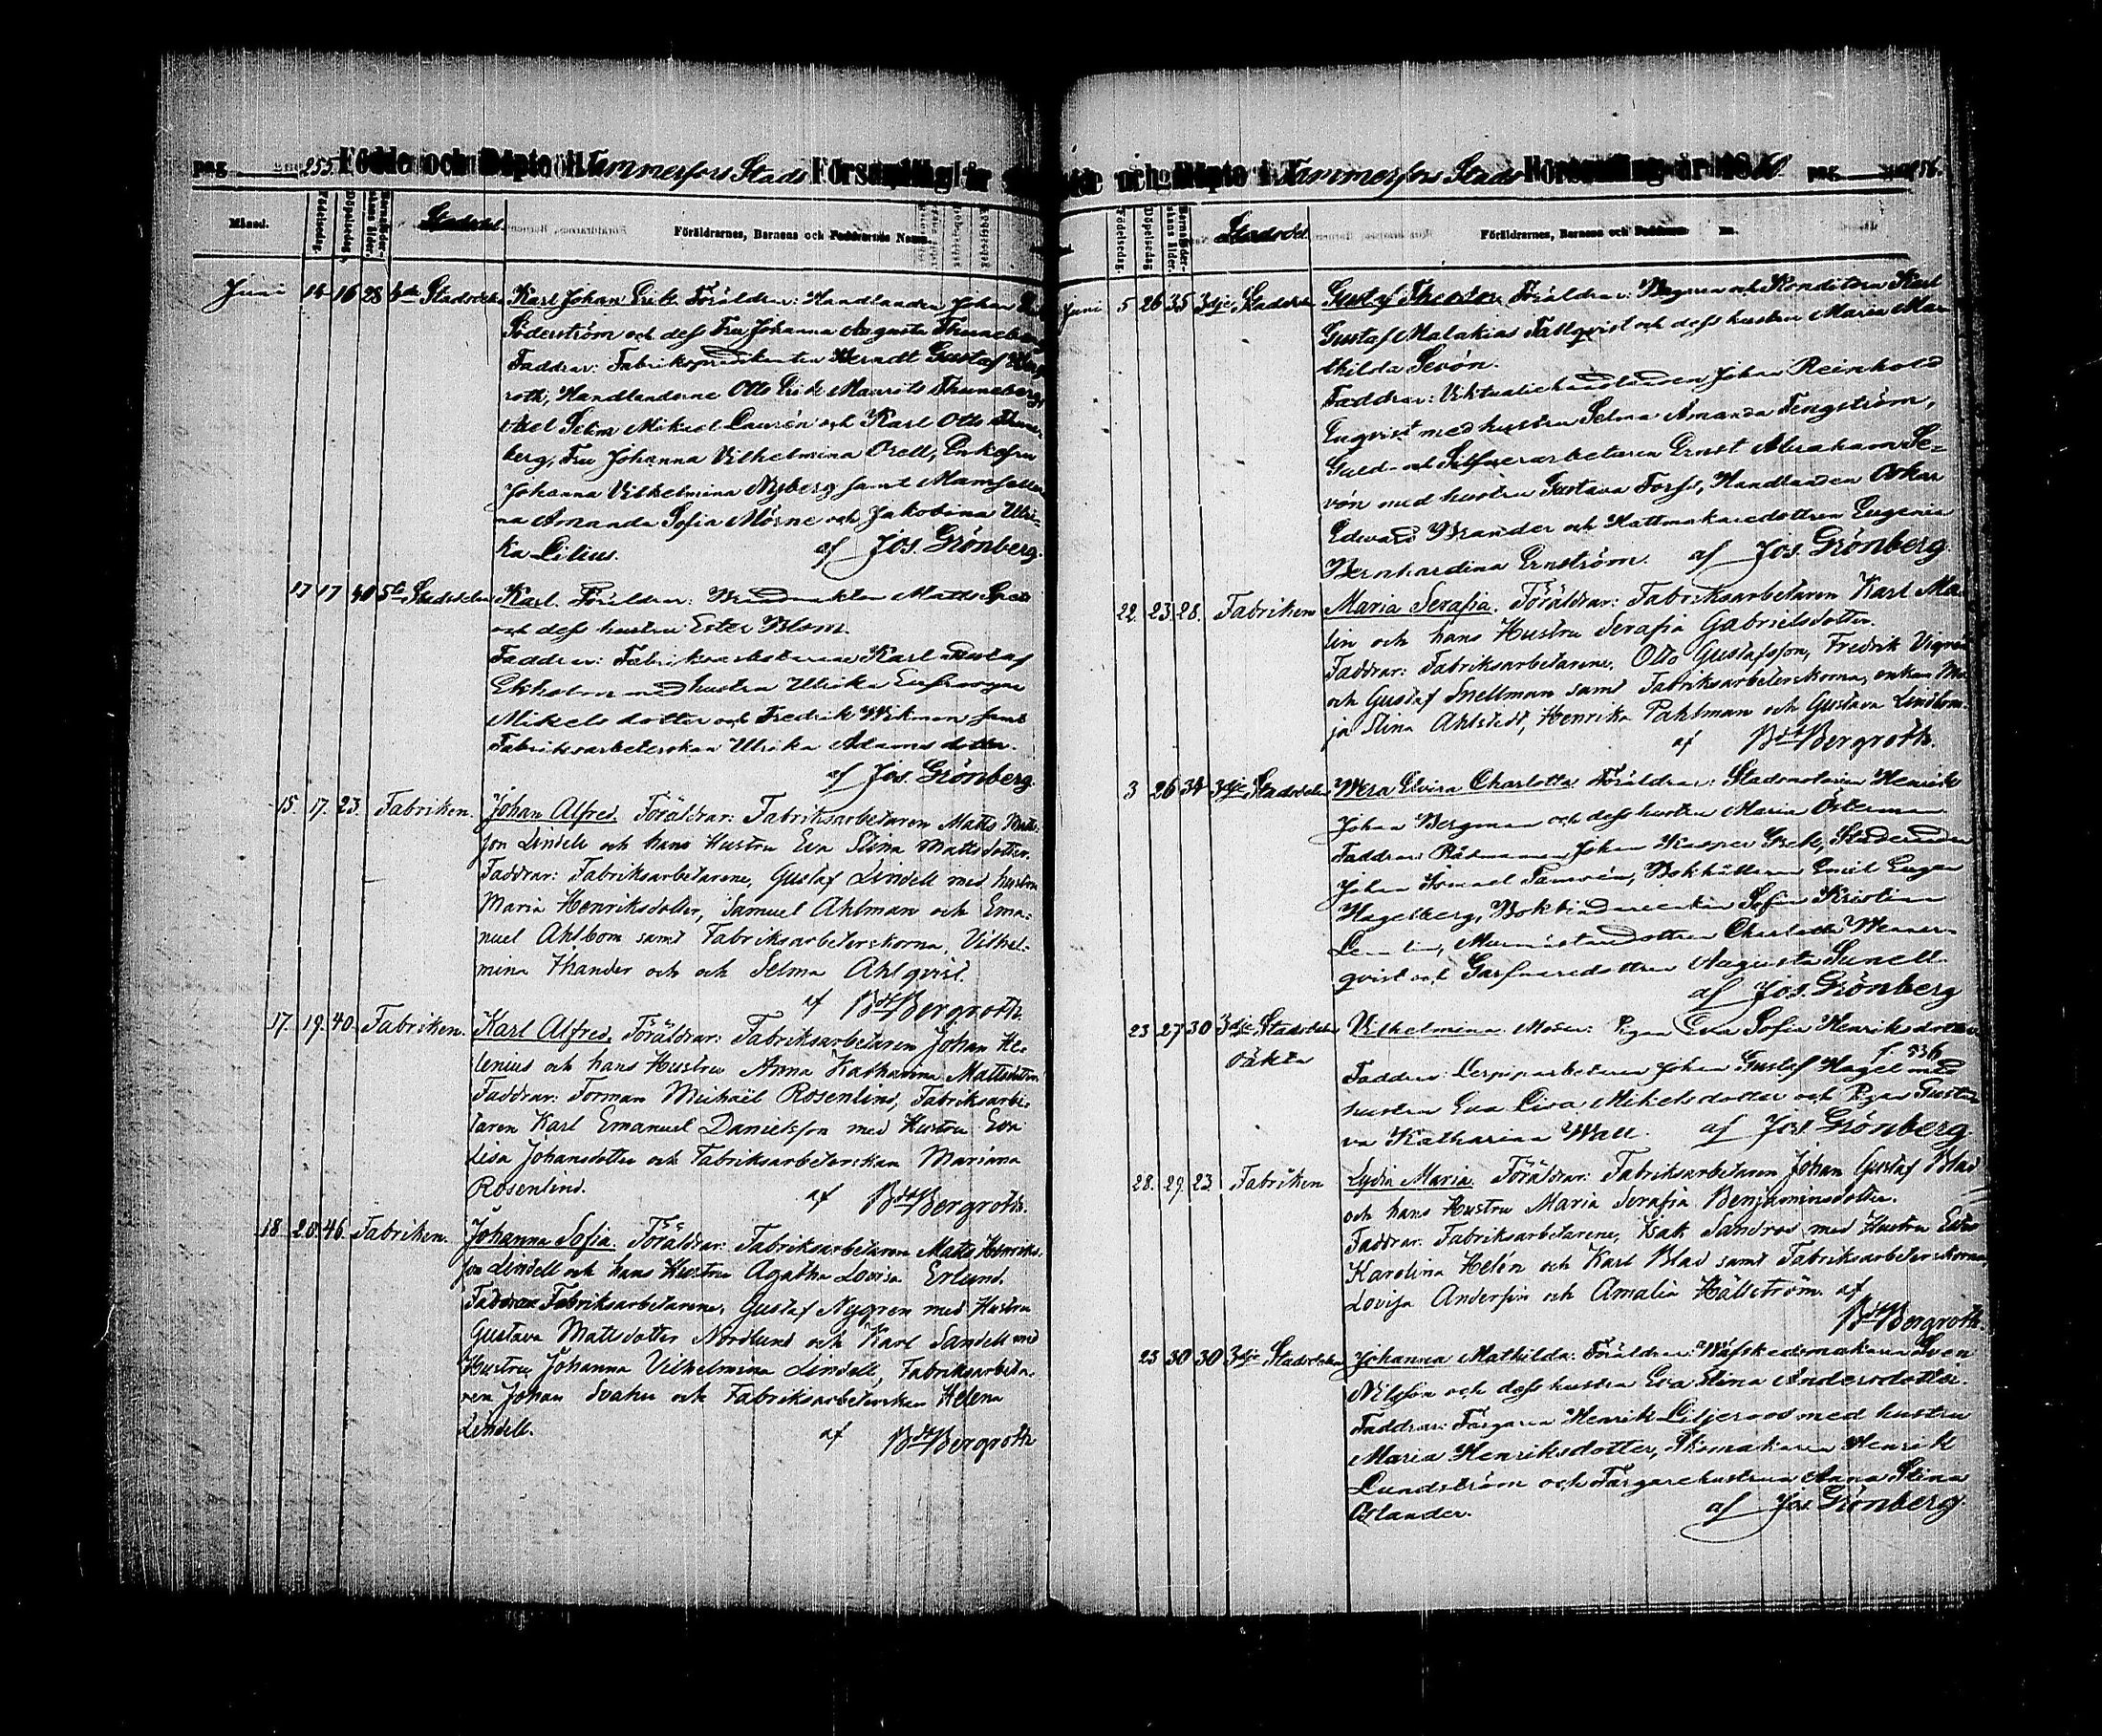 pag. 255. Födde och Döpte i Tammerfors Stads Församling år
Månad. Födelsedag. Döpelsedag. Barnaföderskans ålder. Stadsdel. Föräldrarnes, Barnens och Faddrarnes Namn.
Juni 14 16 28 Stadsdelen Karl Johan Erik. Föräldrar: Handlanden Johan
Söderström och dess Fru Johanna Augusta Thuneberg
Faddrar: Berndt Gustaf
roth, Handlandena Otto Erik Maurits Thuneberg,
Axel Selim Mikael Laurén och Karl Otto Thune-
berg, Fru Johanna Vilhelmina Orell, Enkefru
Johanna Vilhelmina Nyberg samt
na Amanda Sofia Mörne och Jakobina Ulri-
ka Lilius. af Jos. Grönberg.
17 17 40 5te Stadsdelen Karl. Föräldrar: Matts
och dess hustru Ester Blom.
Faddrar: Fabriksarbetarene Karl Gustaf
Ekholm med hustru Ulrika
Mikelsdotter och Fredrik Wikman samt
Fabriksarbeterskan Ulrika Adamsdotter.
af Jos. Grönberg.
15. 17. 23. Fabriken. Johan Alfred. Föräldrar: Fabriksarbetaren Matts Matts-
son Lindell och hans Hustru Eva Stina Mattsdotter.
Faddrar: Fabriksarbetarene, Gustaf Lindell med hustru
Maria Henriksdotter, Samuel Ahlman och Ema-
nuel Ahlbom samt Fabriksarbeterskorna, Vilhel-
mina Thander och och Selma Ahlqvist.
af Bdt Bergroth.
17. 19. 40. Fabriken. Karl Alfred. Föräldrar: Fabriksarbetaren Johan He-
lenius och hans Hustru Anna Katharina Mattsdotter
Faddrar: Forman Michaël Rosenlind, Fabriksarbe-
taren Karl Emanuel Danielsson med Hustru Eva
Lisa Johansdotter och Fabriksarbeterskan Mariana
Rosenlind. af Bdt Bergroth.
18. 20. 46. Fabriken. Johanna Sofia. Föräldrar: Fabriksarbetaren Matts Henriks-
son Lindell och hans Hustru Agatha Lovisa Erlund.
Faddrar: Fabriksarbetarene, Gustaf Nygren med Hustru
Gustava Mattsdotter Nordlund och Karl Sandell med
Hustru Johanna Vilhelmina Lindell, Fabriksarbeta-
ren Johan Svahn och Fabriksarbeterskan Helena
Lindell. af Bdt Bergroth
och Döpte i Tammerfors Stads Församling år 18 pag.
Födelsedag. Döpelsedag. Barnaföderskans ålder. Stadsdel. Föräldrarnes, Barnens och
Juni 5 26 35 3dje Stadsdelen Gustaf Theodor. Föräldrar: Bagaren och Konditorn Karl
Gustaf Malakias Tallqvist och dess hustru Maria Ma-
thilda Sevón.
Faddrar: Viktualiehandlanden Johan Reinhold
Enqvist med hustru Selma Amanda Tengström,
Guld- och Silfverarbetaren Ernst Abraham Se-
vón med hustru Gustava Forss, Handlanden Oskar
Edward Brander och Hattmakaredottren Eugenia
Bernhardina Ernström. af Jos. Grönberg.
22. 23. 28. Fabriken Maria Serafia. Föräldrar: Fabriksarbetaren Karl Ma-
lin och hans Hustru Serafia Gabrielsdotter.
Faddrar: Fabriksarbetarene, Otto Gustafsson, Fredrik Vigrén
och Gustaf Snellman samt Fabriksarbeterskorna, enkan Ma-
ja Stina Ahlstedt, Henrika Pahlman och Gustava Lindbom.
af Bdt Bergroth.
3 26 34 3dje Stadsdelen Wera Elvira Charlotta. Föräldrar: Stadsnotarien Henrik
Johan Bergman och dess hustru Maria Österman
Faddrar: Rådmannen Johan Kasper
Johan, Bokhållaren Emil Eugen
Hagelberg, Sofia Kristina
Charlotta Wenner-
qvist och Garfvaredottren Augusta Sunell.
af Jos. Grönberg
23 27 30 3dje Stadsdelen Vilhelmina. Moder: Pigan Eva Sofia Henriksdotter
oäkta f. 536
Faddrar: Johan Gustaf Hagel med
hustru Eva Lisa Mikelsdotter och Pigan Gusta-
va Katharina Wall. af Jos. Grönberg
28. 29. 23. Fabriken Lydia Maria. Föräldrar: Fabriksarbetaren Johan Gustaf Blad
och hans Hustru Maria Serafia Benjaminsdotter.
Faddrar. Fabriksarbetarene, Isak Sandroos med Hustru Edla
Karolina Helén och Karl Blad samt Fabriksarbeterskorna,
Lovisa Andersin och Amalia Hällström. af
Bdt Bergroth.
23 30 30 3dje Stadsdelen Johanna Mathilda. Föräldrar: Wäfskedsmakaren Sven
Nilsson och dess hustru Eva Stina Andersdotter.
Faddrar: Färgaren Henrik Liljeroos med hustru
Maria Henriksdotter, Skomakaren Henrik
Lundström och Färgarehustrun Anna Stina
Aslander. af Jos. Grönberg